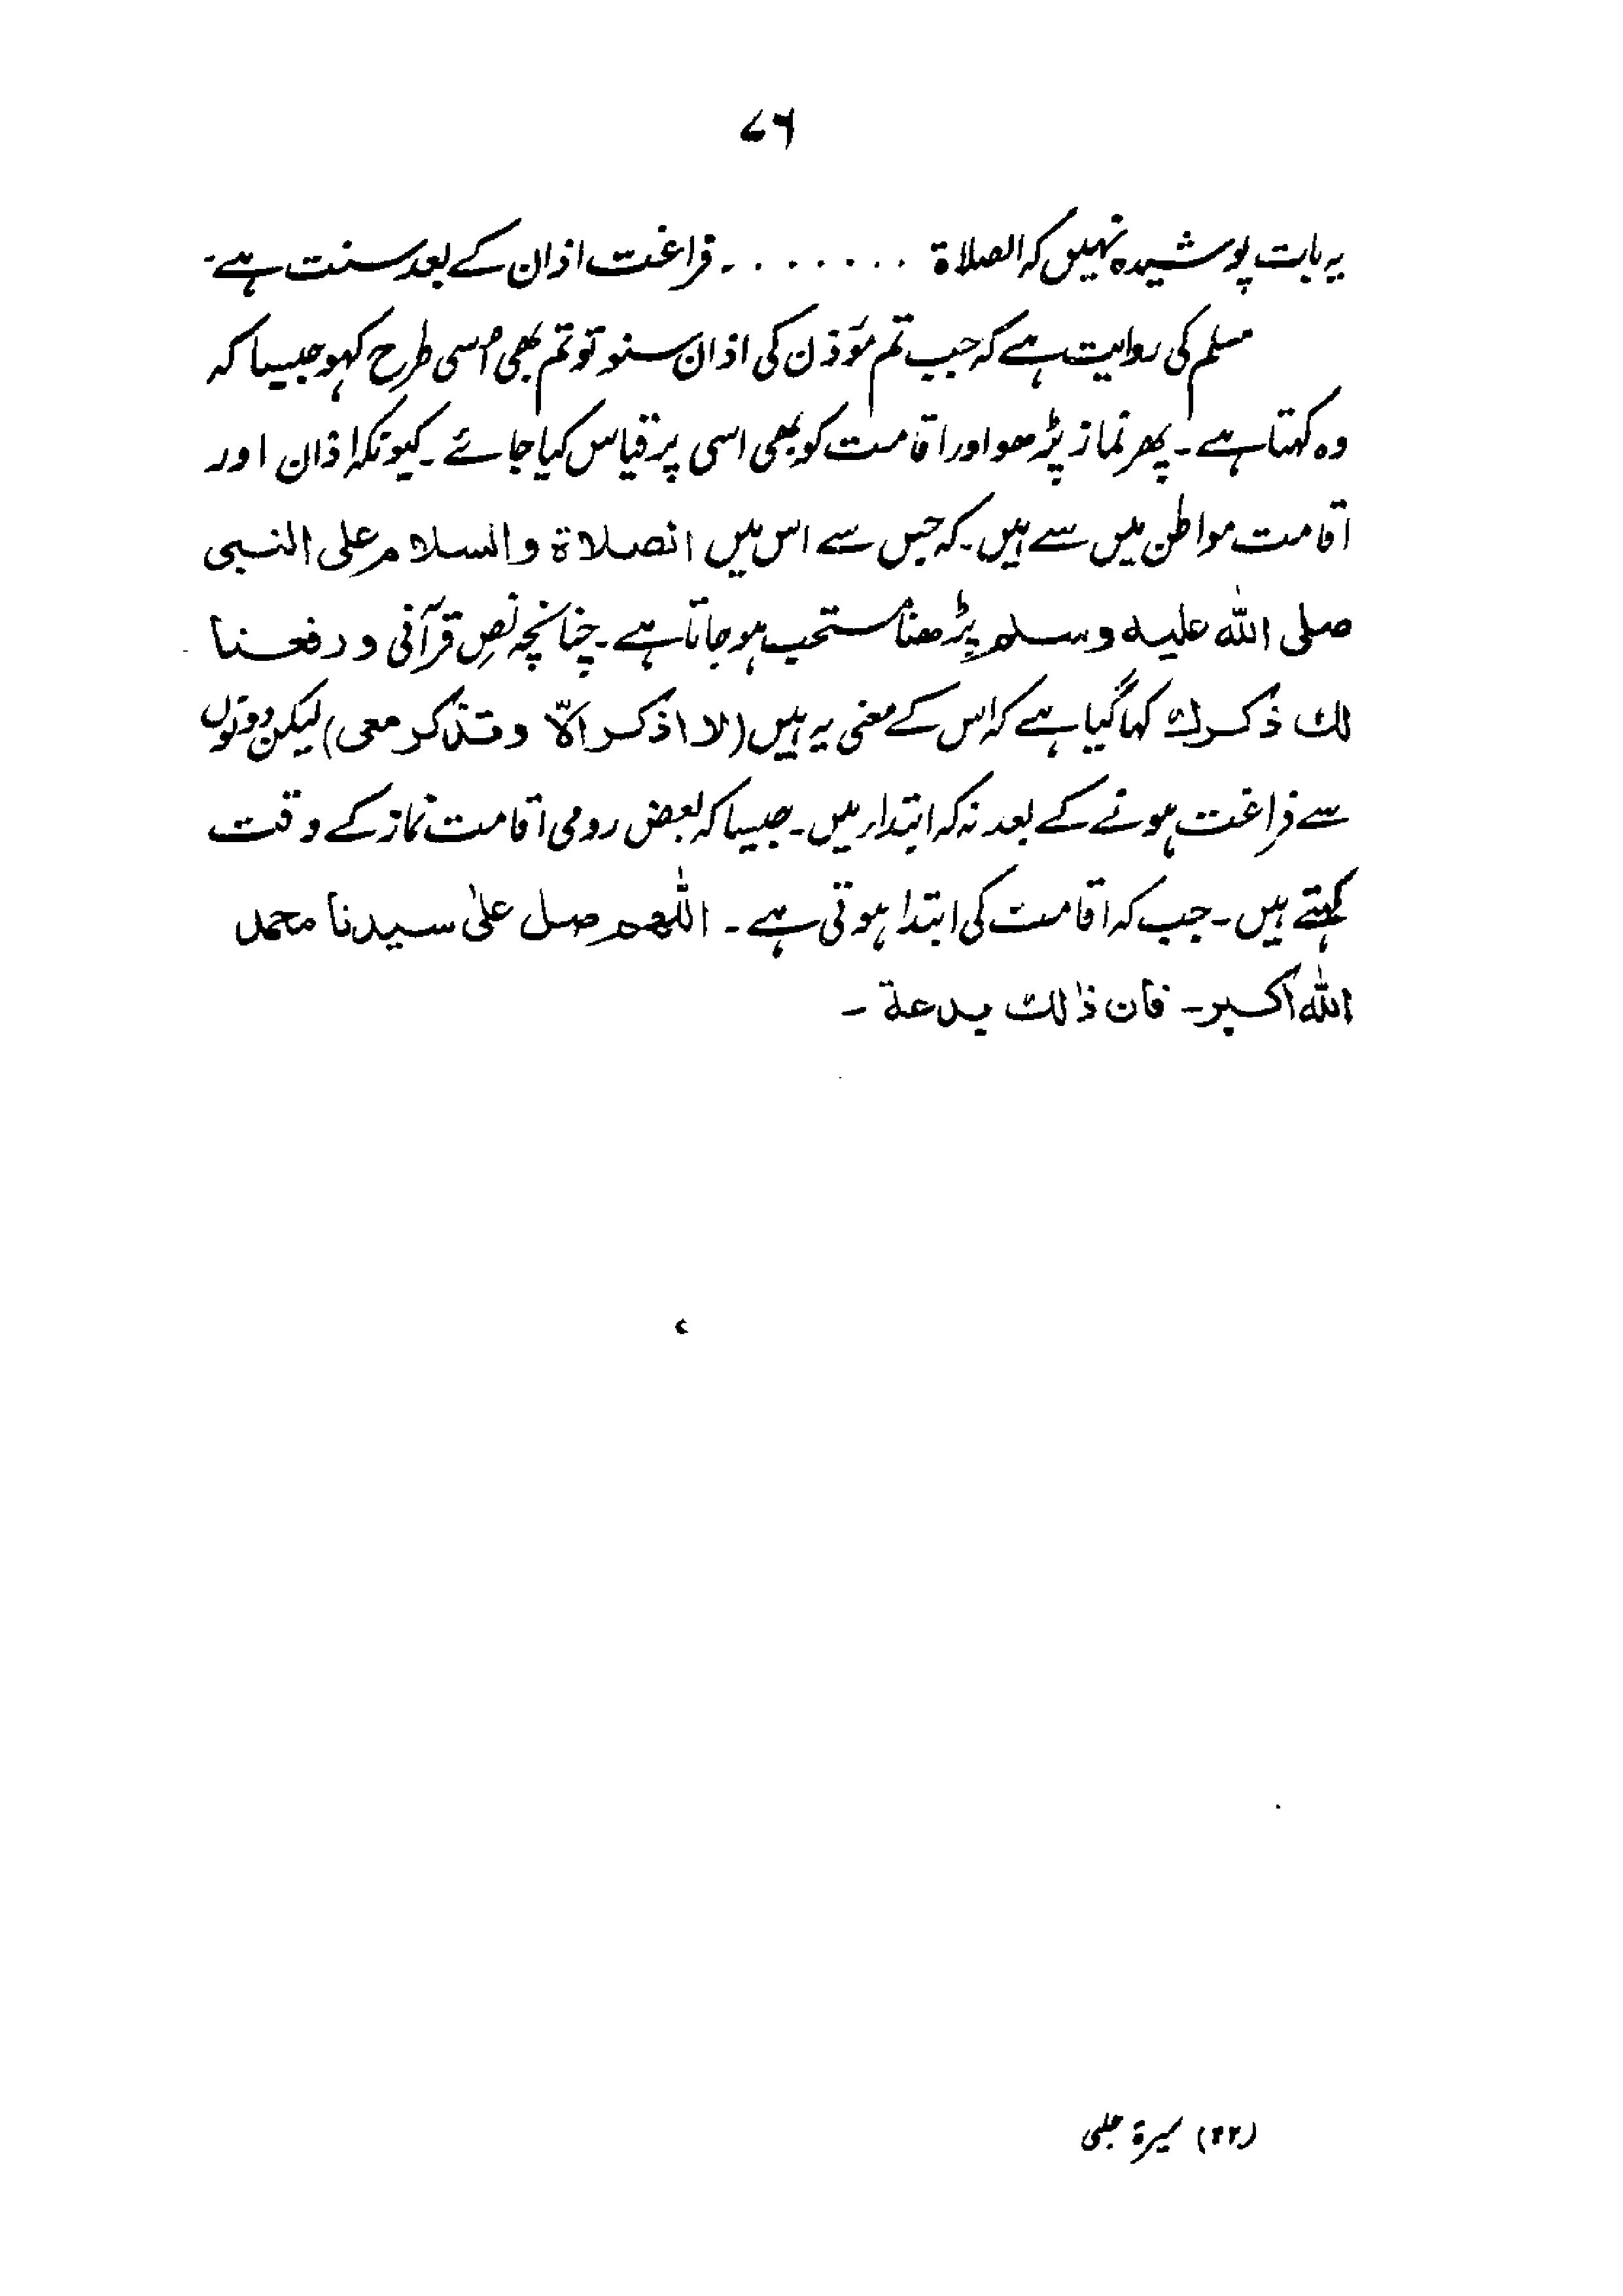 ۷۶
یہ بات پوشیدہ نہیں کہ الصلاۃ ۔ ۔ ۔ ۔ ۔ ۔ ۔ فراغت اذان کے بعد سنت ہے۔
مسلم کی روایت ہے کہ جب تم مؤذن کی اذان سنو تو تم بھی اُسی طرح کہو جیسا کہ
وہ کہتا ہے۔ پھر نماز پڑھو اور اقامت کو بھی اسی پر قیاس کیا جائے۔ کیونکہ اذان اور
اقامت مواطن میں سے ہیں۔ کہ جس سے اس میں الصلاة والسلام على النبى
صلى الله عليه وسلم پڑھنا مستحب ہو جاتا ہے۔ چنانچہ نصِ قرآنی ورفعنا
لك ذكرك کہا گیا ہے کہ اس کے معنی یہ ہیں (لا اذكر الّا وتذكر معى) لیکن دونوں
سے فراغت ہونے کے بعد نہ کہ ابتدار میں۔ جیسا کہ بعض رومی اقامت نماز کے وقت
کہتے ہیں۔ جب کہ اقامت کی ابتدا ہوتی ہے۔ اللهم صل على سيدنا محمد
الله اكبر۔ فان ذالك بدعة۔
(۲۲) سیرۃ حلبی